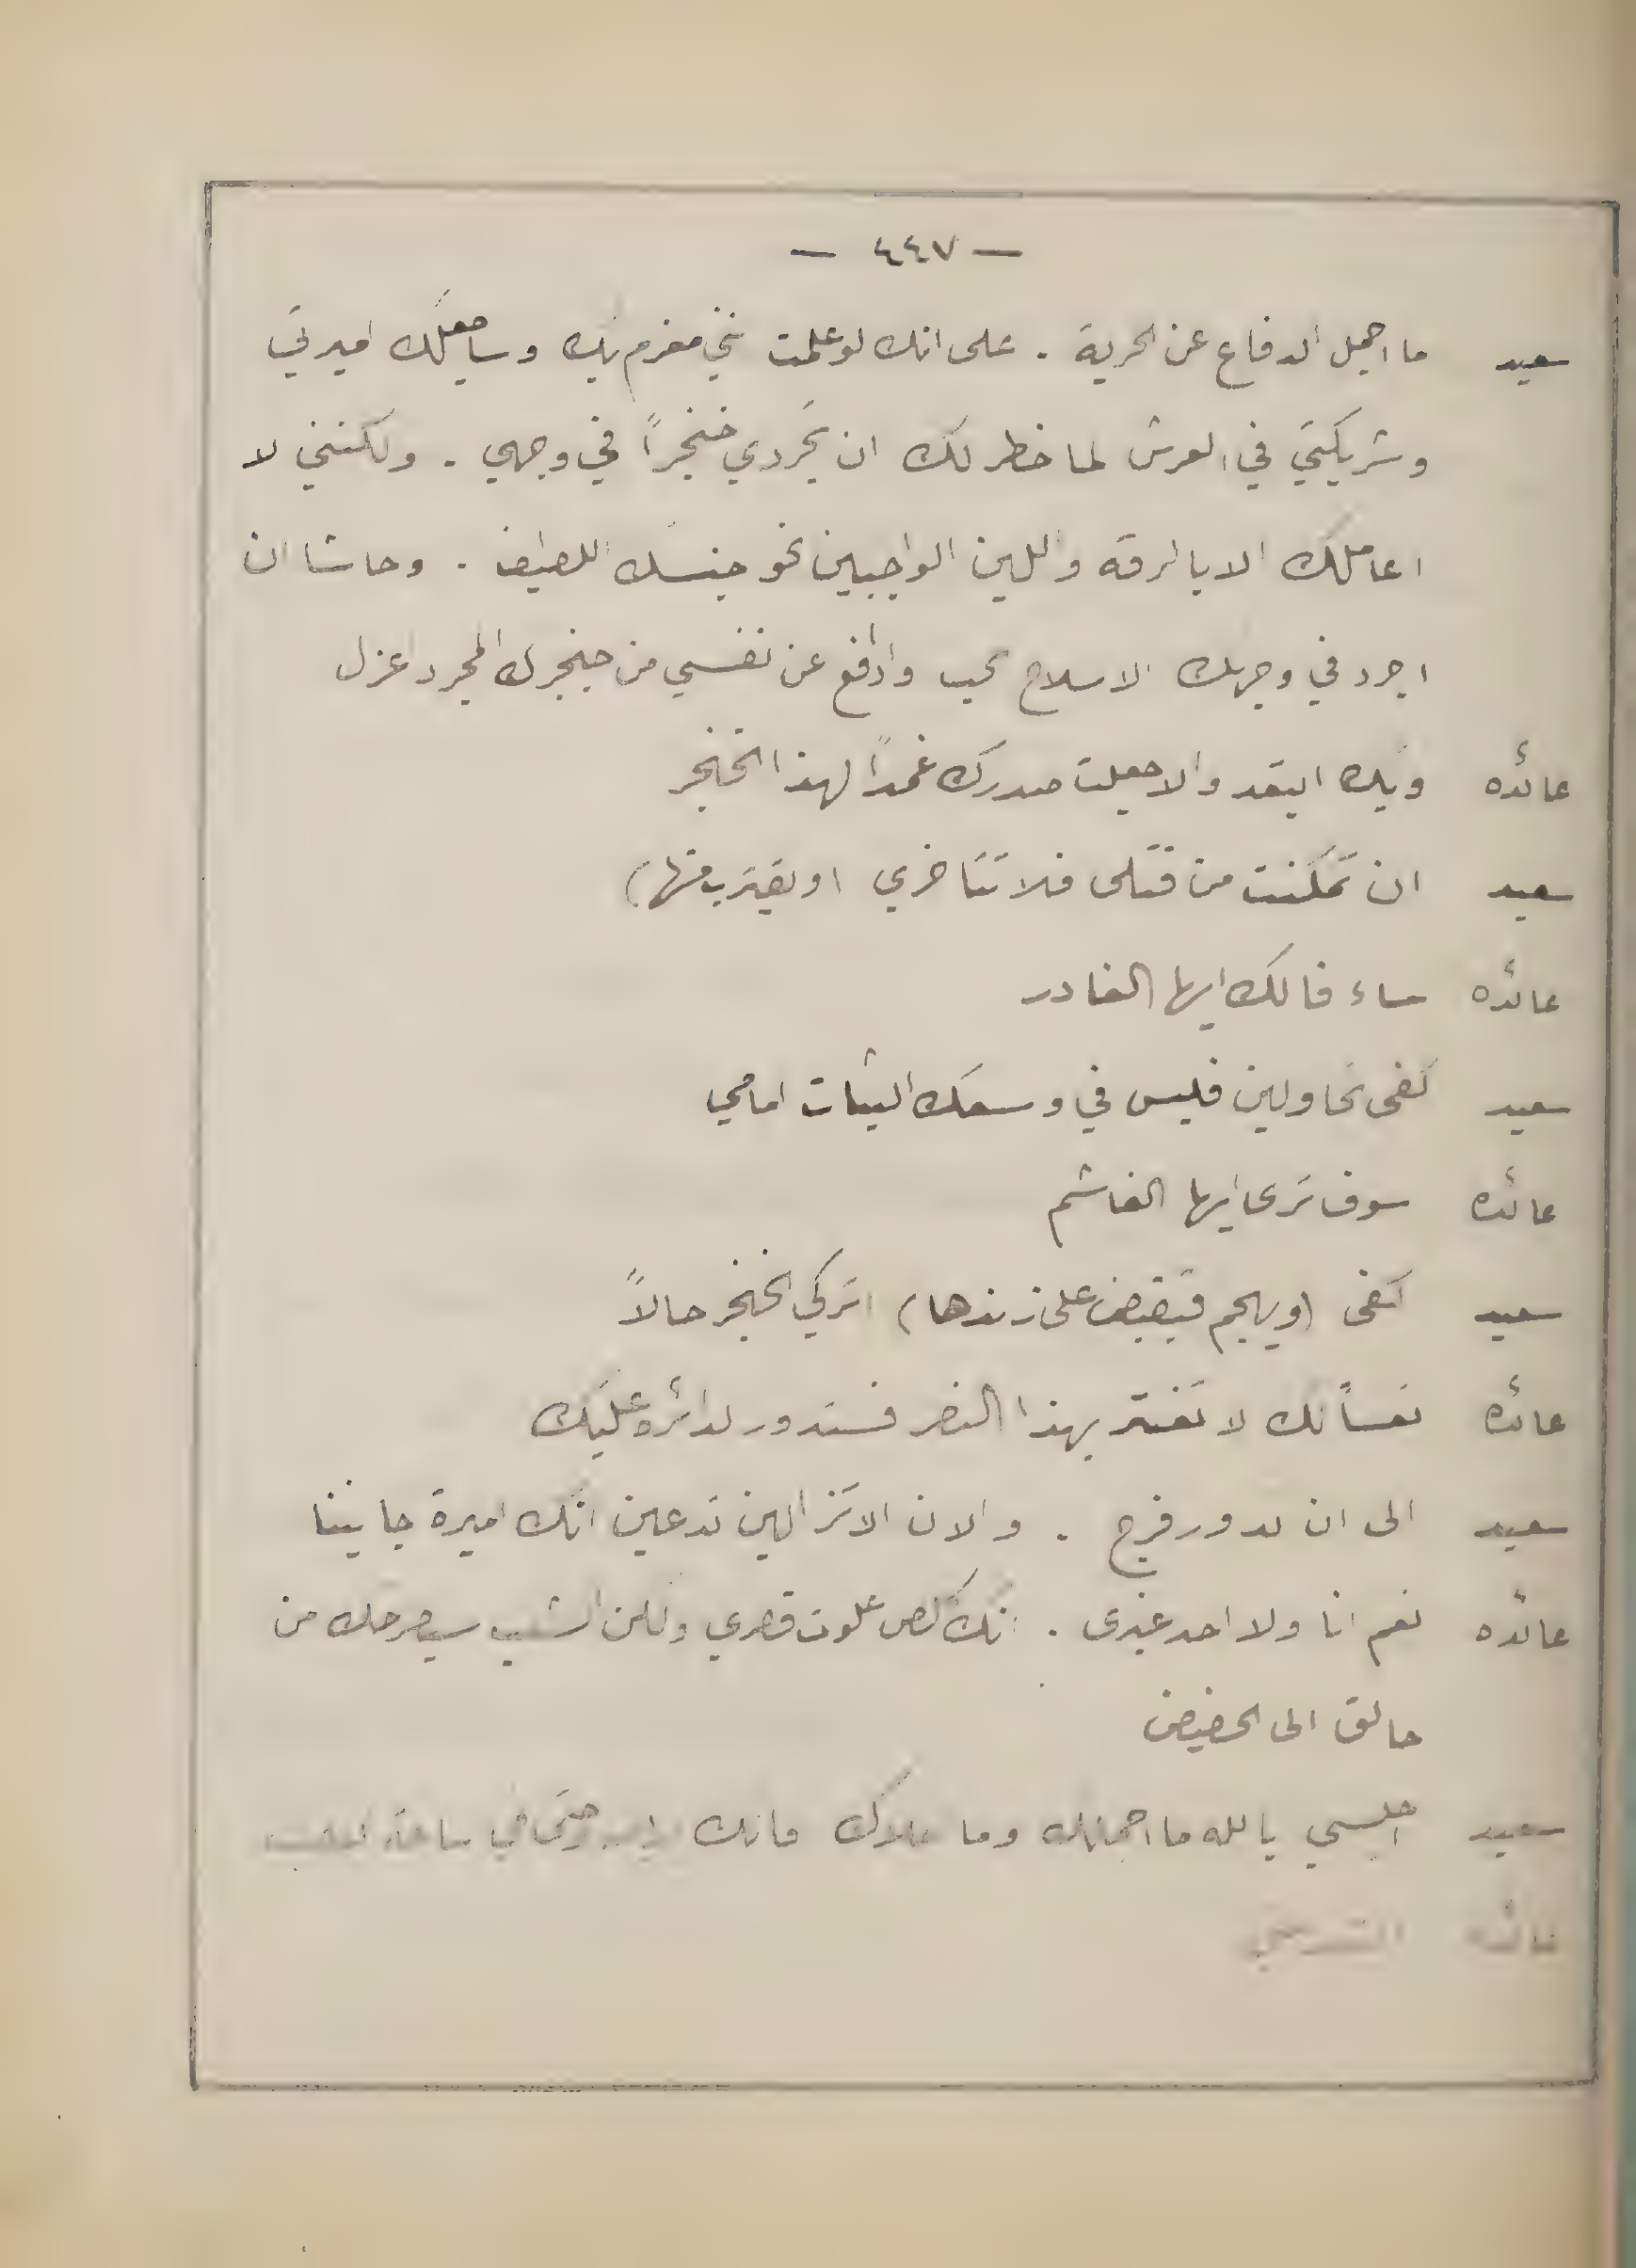 — ٤٤٧ —
سعيد ما اجمل الدفاع عن الحرية . على انك لو علمت نني مغرم بك وساجعلك اميرتي
وشريكتي في العرش لما خطر لك ان تجردي خنجراً في وجهي . ولكنني لا
اعاملك الا بالرقه واللين الواجبين نحو جنسك اللطيف . وحاشا ان
اجرد في وجهك الا سلاح الحب وادافع عن نفسي من خنجرك المجرد اعزل
عائده ويك ابتعد والا جعلت صدرك غمداً لهذا الخنجر
سعيد ان تمكنت من قتلى فلا تتاخري (ويقترب منها)
عائده ساء فالك ايها الغادر
سعيد كفى تحاولين فليس في وسعك الثبات امامي
عائده سوف ترى ايها الغاشم
سعيد كفى (ويهجم فيقبض على زندها) اتركي الخنجر حالاً
عائده تعساً لك لا تغتر بهذا النصر فستدور لدائره عليك
سعيد الى ان تدور فرج . والان الا تزالين تدعين انك اميرة جايينا
عائده نعم انا ولا احد غيرى . انك لص علوت قصري ولكن الشعب سيطرحك من
حالق الى الحضيض
سعيد اجلسي يالله ما اجملك وما حلاك حتى في ساعة
عائده